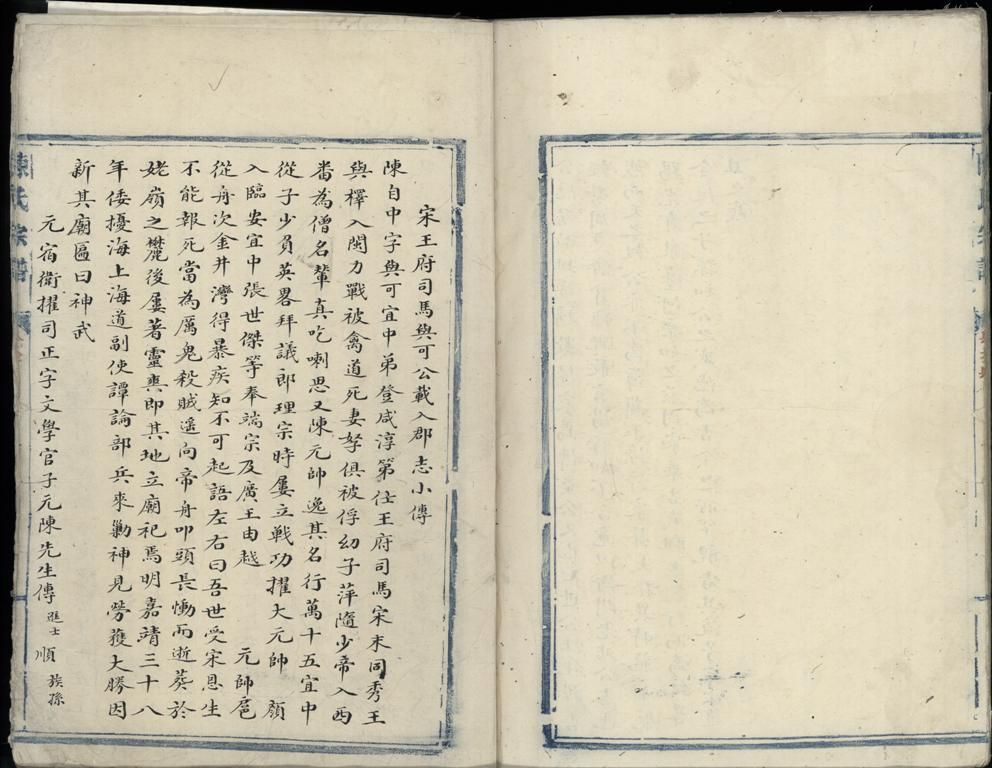 宋王府司馬與可公載入郡志小傳
陳自中字與可宜中弟登咸淳第仕王府司馬宋末同秀王
與檡入閩力戰被禽道死妻孥俱被俘幼子萍隨少帝入西
番為僧名輦真吃喇思又陳元帥逸其名行萬十五宜中
從子少負英畧拜議郎理宗時屢立戰功擢大元帥 顏
入臨安宜中張世傑等奉端宗及廣王由越 元帥扈
從舟次金井灣得暴疾知不可起語左右曰吾世受宋恩生
不能報死當為厲鬼殺賊遥向帝舟叩頭長慟而逝葬於
姥嶺之麓後屢著靈爽即其地立廟祀焉明嘉靖三十八
年倭擾海上海道副使譚論部兵來勦神見勞獲大勝因
新其廟匾曰神武
元宿衛擢司正字文學官子元陳先生傳 進士 順 族孫
陳氏宗譜